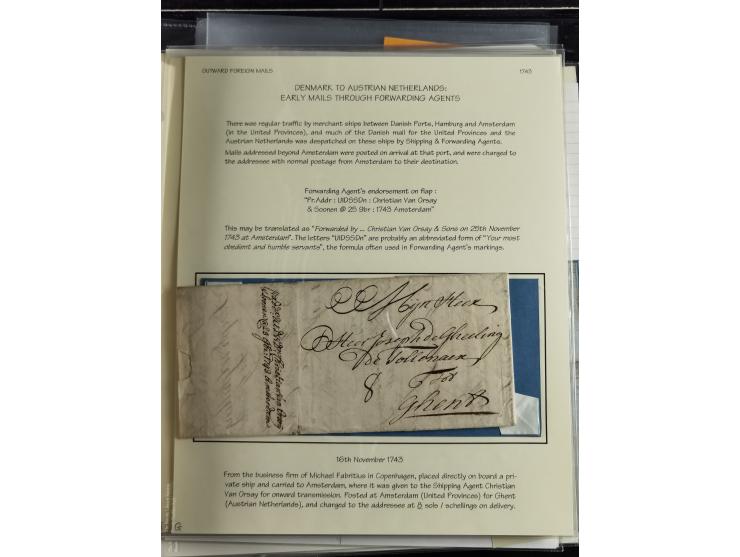 OUTWARD FOREIGN MAILS
1743
DENMARK TO AUSTRIAN NETHERLANDS:
EARLY MAILS THROUGH FORWARDING AGENTS
There was regular traffic by merchant ships between Danish Ports, Hamburg and Amsterdam
(in the United Provinces), and much of the Danish mail for the United Provinces and the
Austrian Netherlands was despatched on these ships by Shipping & Forwarding Agents.
Mails addressed beyond Amsterdam were posted on arrival at that port, and were charged to
the addressee with normal postage from Amsterdam to their destination.
Forwarding Agent's endorsement on flap :
"Pr.Addr : UIDSSDn : Christian Van Orsay
& Soonen @ 25 9br : 1743 Amsterdam"
This may be translated as "Forwarded by ... Christian Van Orsay & Sons on 25th November
1743 at Amsterdam". The letters "UIDSSDn" are probably an abbreviated form of "Your most
obedient and humble servants", the formula often used in Forwarding Agent's markings.
Mijn Heer
Heer Joseph de Ghelling
de Tollenaer
8
Tot
Ghent
16th November 1743
From the business firm of Michael Fabritius in Copenhagen, placed directly on board a pri-
vate ship and carried to Amsterdam, where it was given to the Shipping Agent Christian
Van Orsay for onward transmission. Posted at Amsterdam (United Provinces) for Ghent
(Austrian Netherlands), and charged to the addressee at 8 sols / schellings on delivery.
G